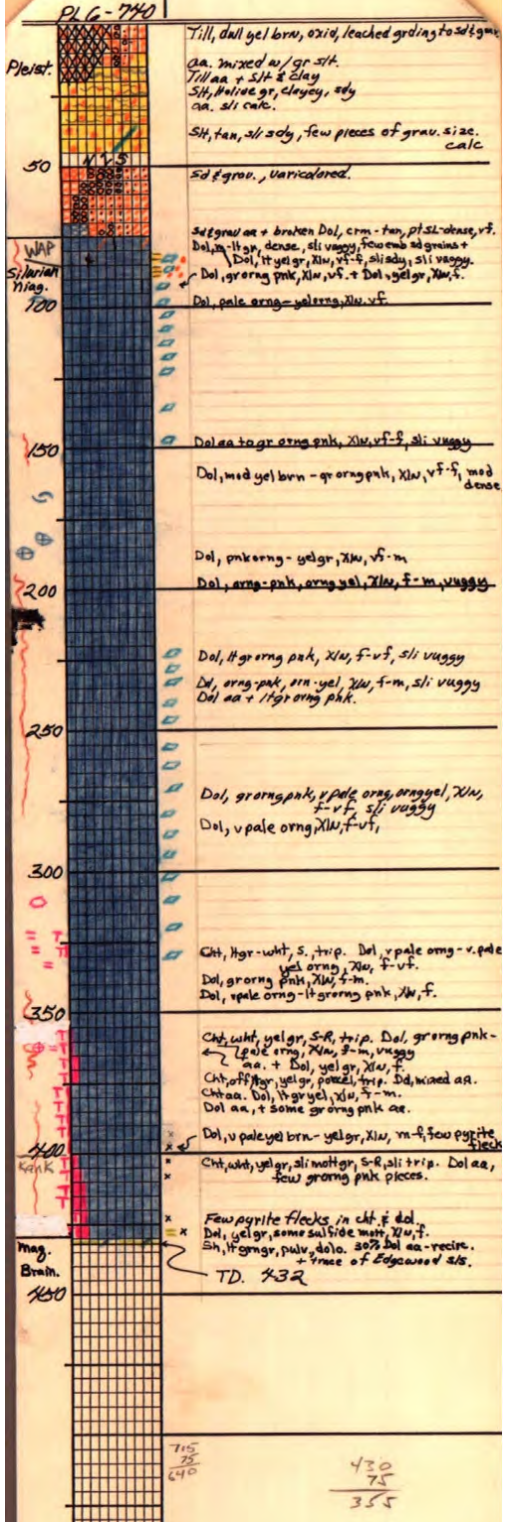 PLG-740
Till, dull yel brn, oxid, leached grding to sd & grav
Pleist.
aa. mixed w/ gr slt.
Till aa + slt & clay
Slt, ltolive gr, clayey, sdy
aa. sli calc.
Slt, tan, sli sdy, few pieces of grav. size.
calc
50
Sd & grav., varicolored.
Sd & grav aa + broken Dol, crm-tan, pt SL-dense, vf.
WAP
Dol, m-ltgr, dense, sli vuggy, few emb sd grains +
Dol, lt yelgr, Xln, vf-f, sli sdy, sli vuggy.
Silurian
Niag.
Dol, grorng pnk, Xln, vf. + Dol, yelgr, Xln, f.
100
Dol, pale orng-yelorng, Xln, vf.
150
Dol aa to gr orng pnk, Xln, vf-f, sli vuggy
Dol, mod yel brn - gr orng pnk, Xln, vf-f, mod
dense
Dol, pnkorng - yelgr, Xln, vf-m
200
Dol, orng-pnk, orng yel, Xln, f-m, vuggy
Dol, ltgrorng pnk, Xln, f-vf, sli vuggy
Dol, orng-pnk, orn-yel, Xln, f-m, sli vuggy
Dol aa + ltgr orng pnk.
250
Dol, grorngpnk, v pale orng, orngyel, Xln,
f-vf, sli vuggy
Dol, v pale orng, Xln, f-vf,
300
Cht, ltgr-wht, S., trip. Dol, v pale orng - v. pale
yel orng, Xln, f-vf.
Dol, grorng pnk, Xln, f-m.
Dol, vpale orng-ltgrorng pnk, Xln, f.
350
Cht, wht, yelgr, S-R, trip. Dol, grorng pnk-
pale orng, Xln, f-m, vuggy
aa. + Dol, yelgr, Xln, f.
Cht, off/ltgr, yelgr, porcel, trip. Dol, mixed aa.
Cht aa. Dol, ltgryel, Xln, f-m.
Dol aa, + some grorng pnk aa.
Dol, v pale yel brn - yelgr, Xln, m-f, few pyrite
fleck
400
Kank
Cht, wht, yelgr, sli mott gr, S-R, sli trip. Dol aa,
few grorng pnk pieces.
Few pyrite flecks in cht & dol.
Dol, yelgr, some sulfide mott, Xln, f.
Maq.
Brain.
Sh, ltgrngr, pulv, dolo. 30% Dol aa-recirc.
+ trace of Edgewood sls.
TD. 432
450
715
75
640
430
75
355